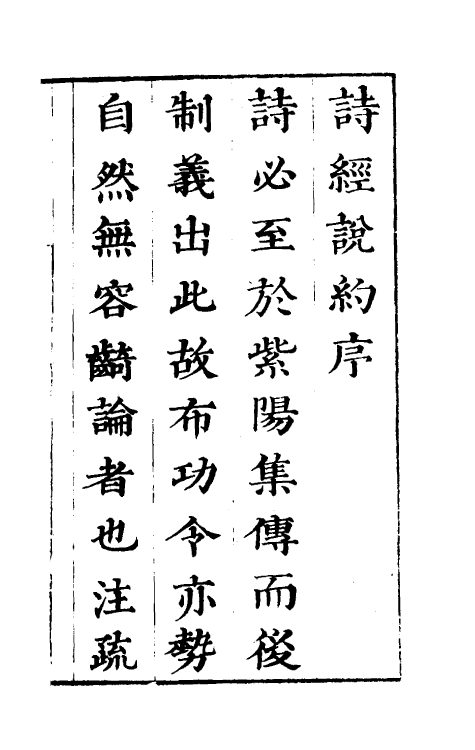 詩經說約序
詩必至於紫陽集傳而後
制義出此故布功令亦勢
自然無容齮論者也注疏